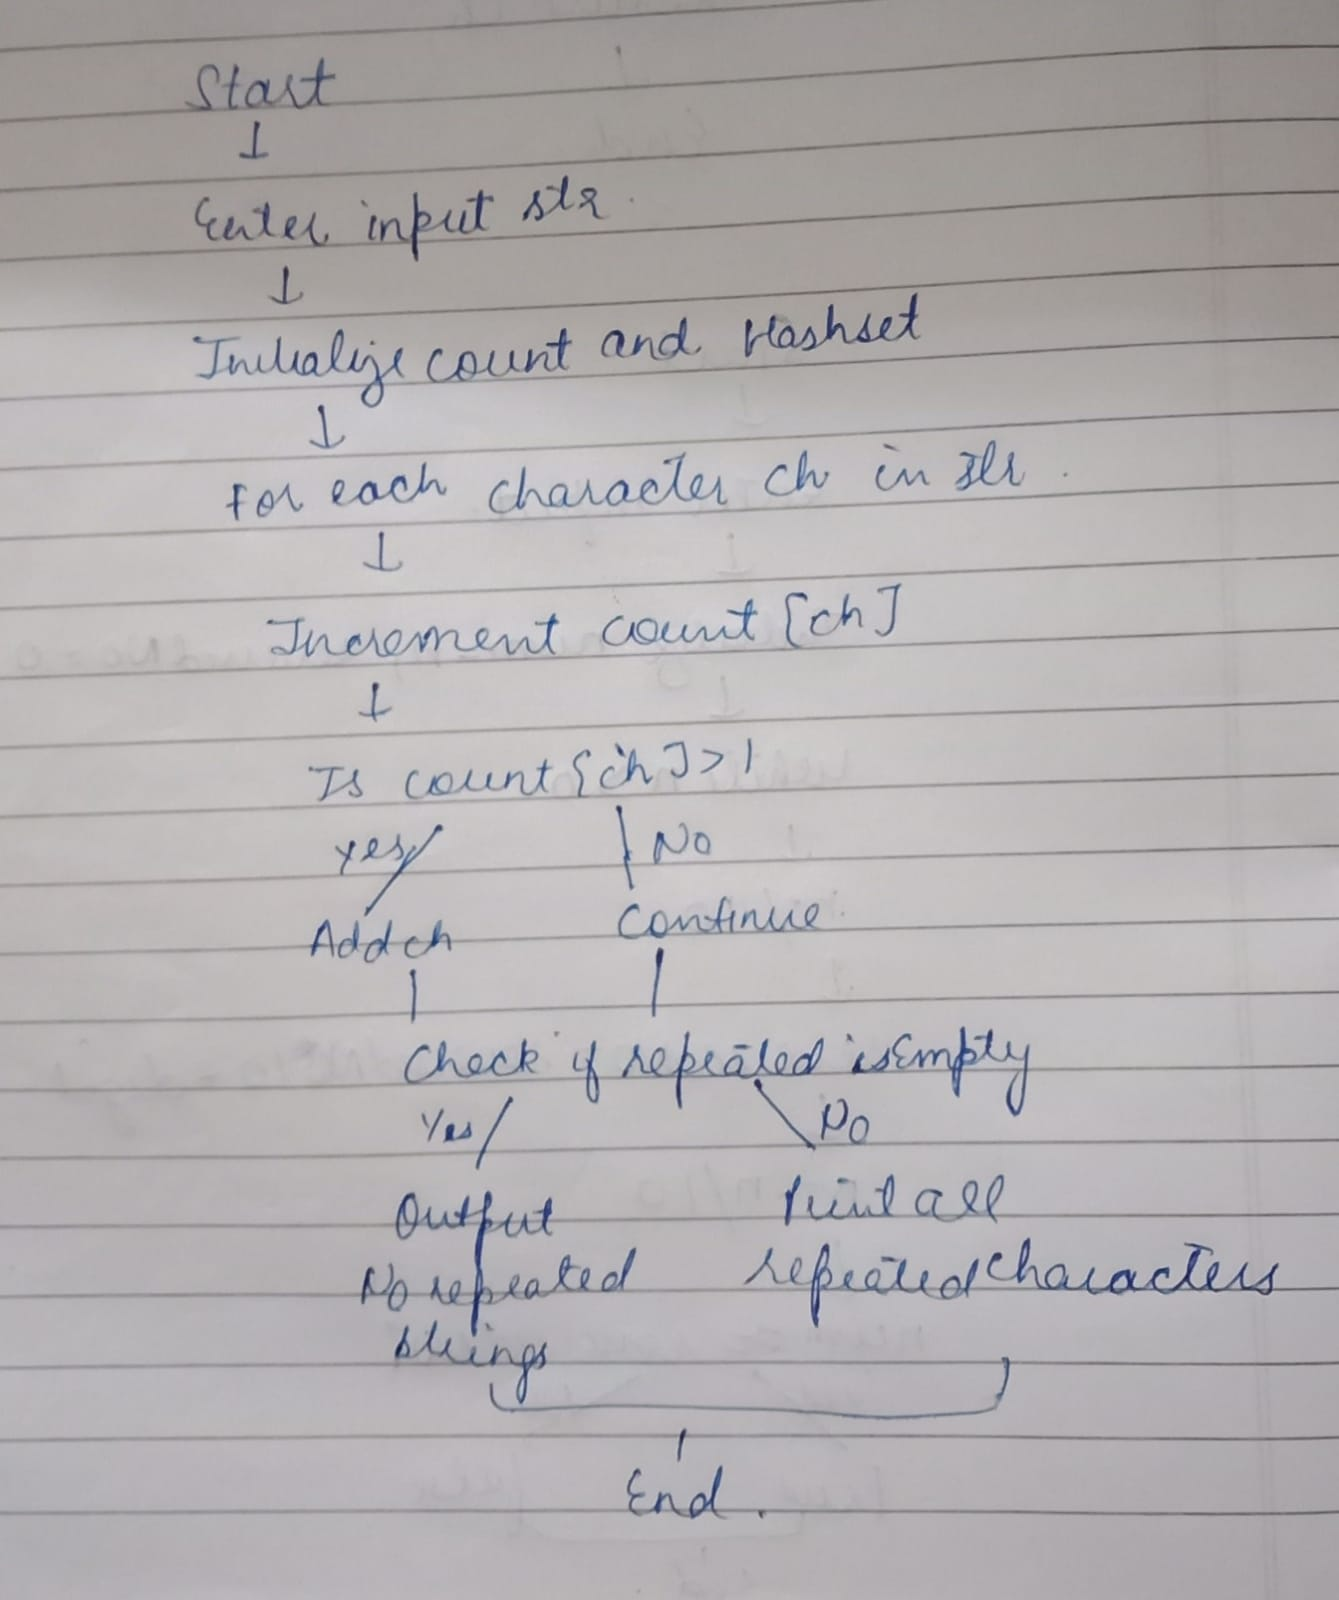 Start
Enter input str
Initialize count and Hashset
for each character ch in str.
Increment count [ch]
Is count [ch] > 1
Yes No
Add ch Continue
Check if repeated isEmpty
Yes No
Output Print all
No repeated repeated characters
strings
End.